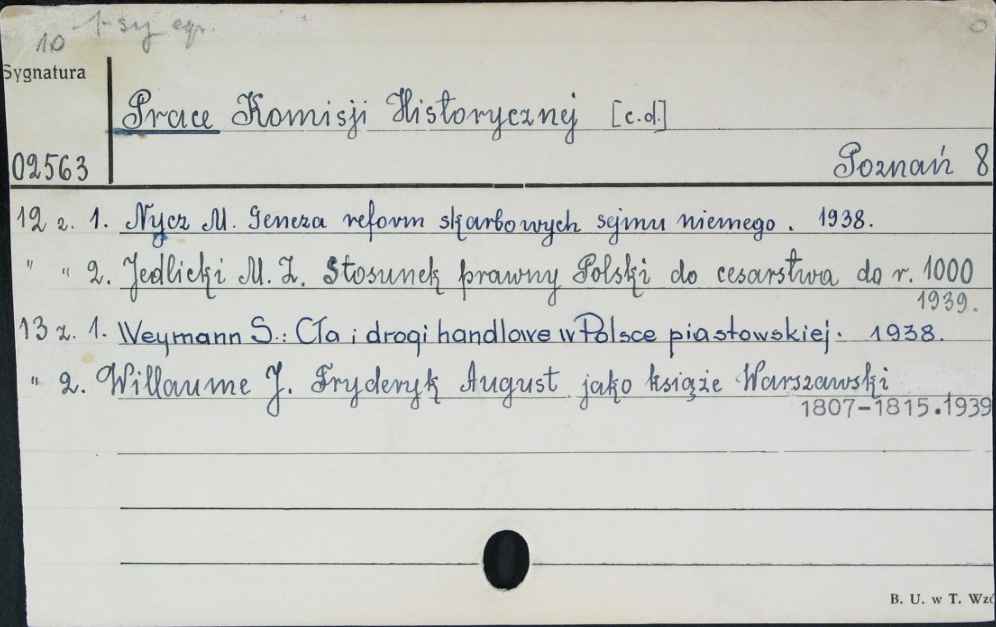 10 1-szy egz.
Sygnatura
Prace Komisji Historycznej [c.d.]
02563
Poznań 8
12 z. 1. Nycz M. Geneza reform skarbowych sejmu niemego. 1938.
" " 2. Jedlicki M. Z. Stosunek prawny Polski do cesarstwa do r. 1000
1939.
13 z. 1. Weymann S.: Cła i drogi handlowe w Polsce piastowskiej. 1938.
" 2. Willaume J. Fryderyk August jako książe Warszawski
1807-1815.1939
B. U. w T.